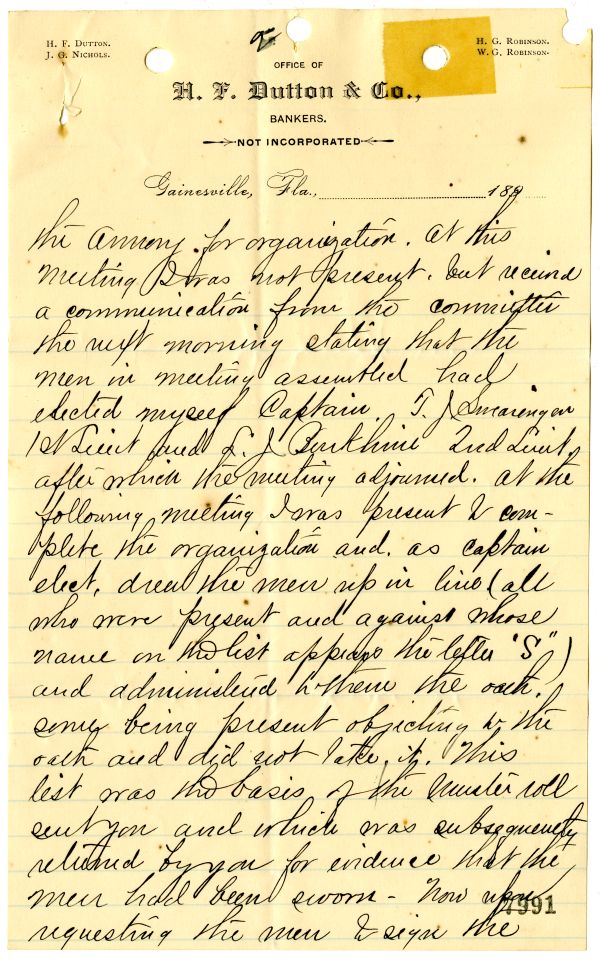 H. F. Dutton.
J. G. Nichols.
H. G. Robinson.
W. G. Robinson.
OFFICE OF
H. F. Dutton & Co.,
BANKERS.
NOT INCORPORATED
Gainesville, Fla., 189
the Armory for organization. At this
meeting I was not present. but received
a communication from the committee
the next morning stating that the
men in meeting assembled had
elected myself Captain T. J. Swearingen
1st Lieut and L. J. 2nd Lieut.
after which the meeting adjourned. At the
following meeting I was present to com-
plete the organization and, as captain
elect, drew the men up in line (all
who were present and against whose
name on the list appears the letter "S")
and administered to them the oath.
some being present objecting to the
oath and did not take it. This
list was the basis of the Muster roll
sent you and which was subsequently
returned by you for evidence that the
men had been sworn - Now upon
requesting the men to sign the
7991